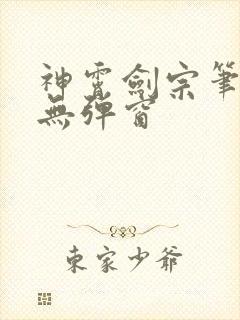 神霄劍宗筆
無彈窗
東家少爺